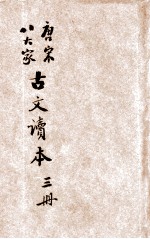 唐宋
八大家
古文讀本 三冊